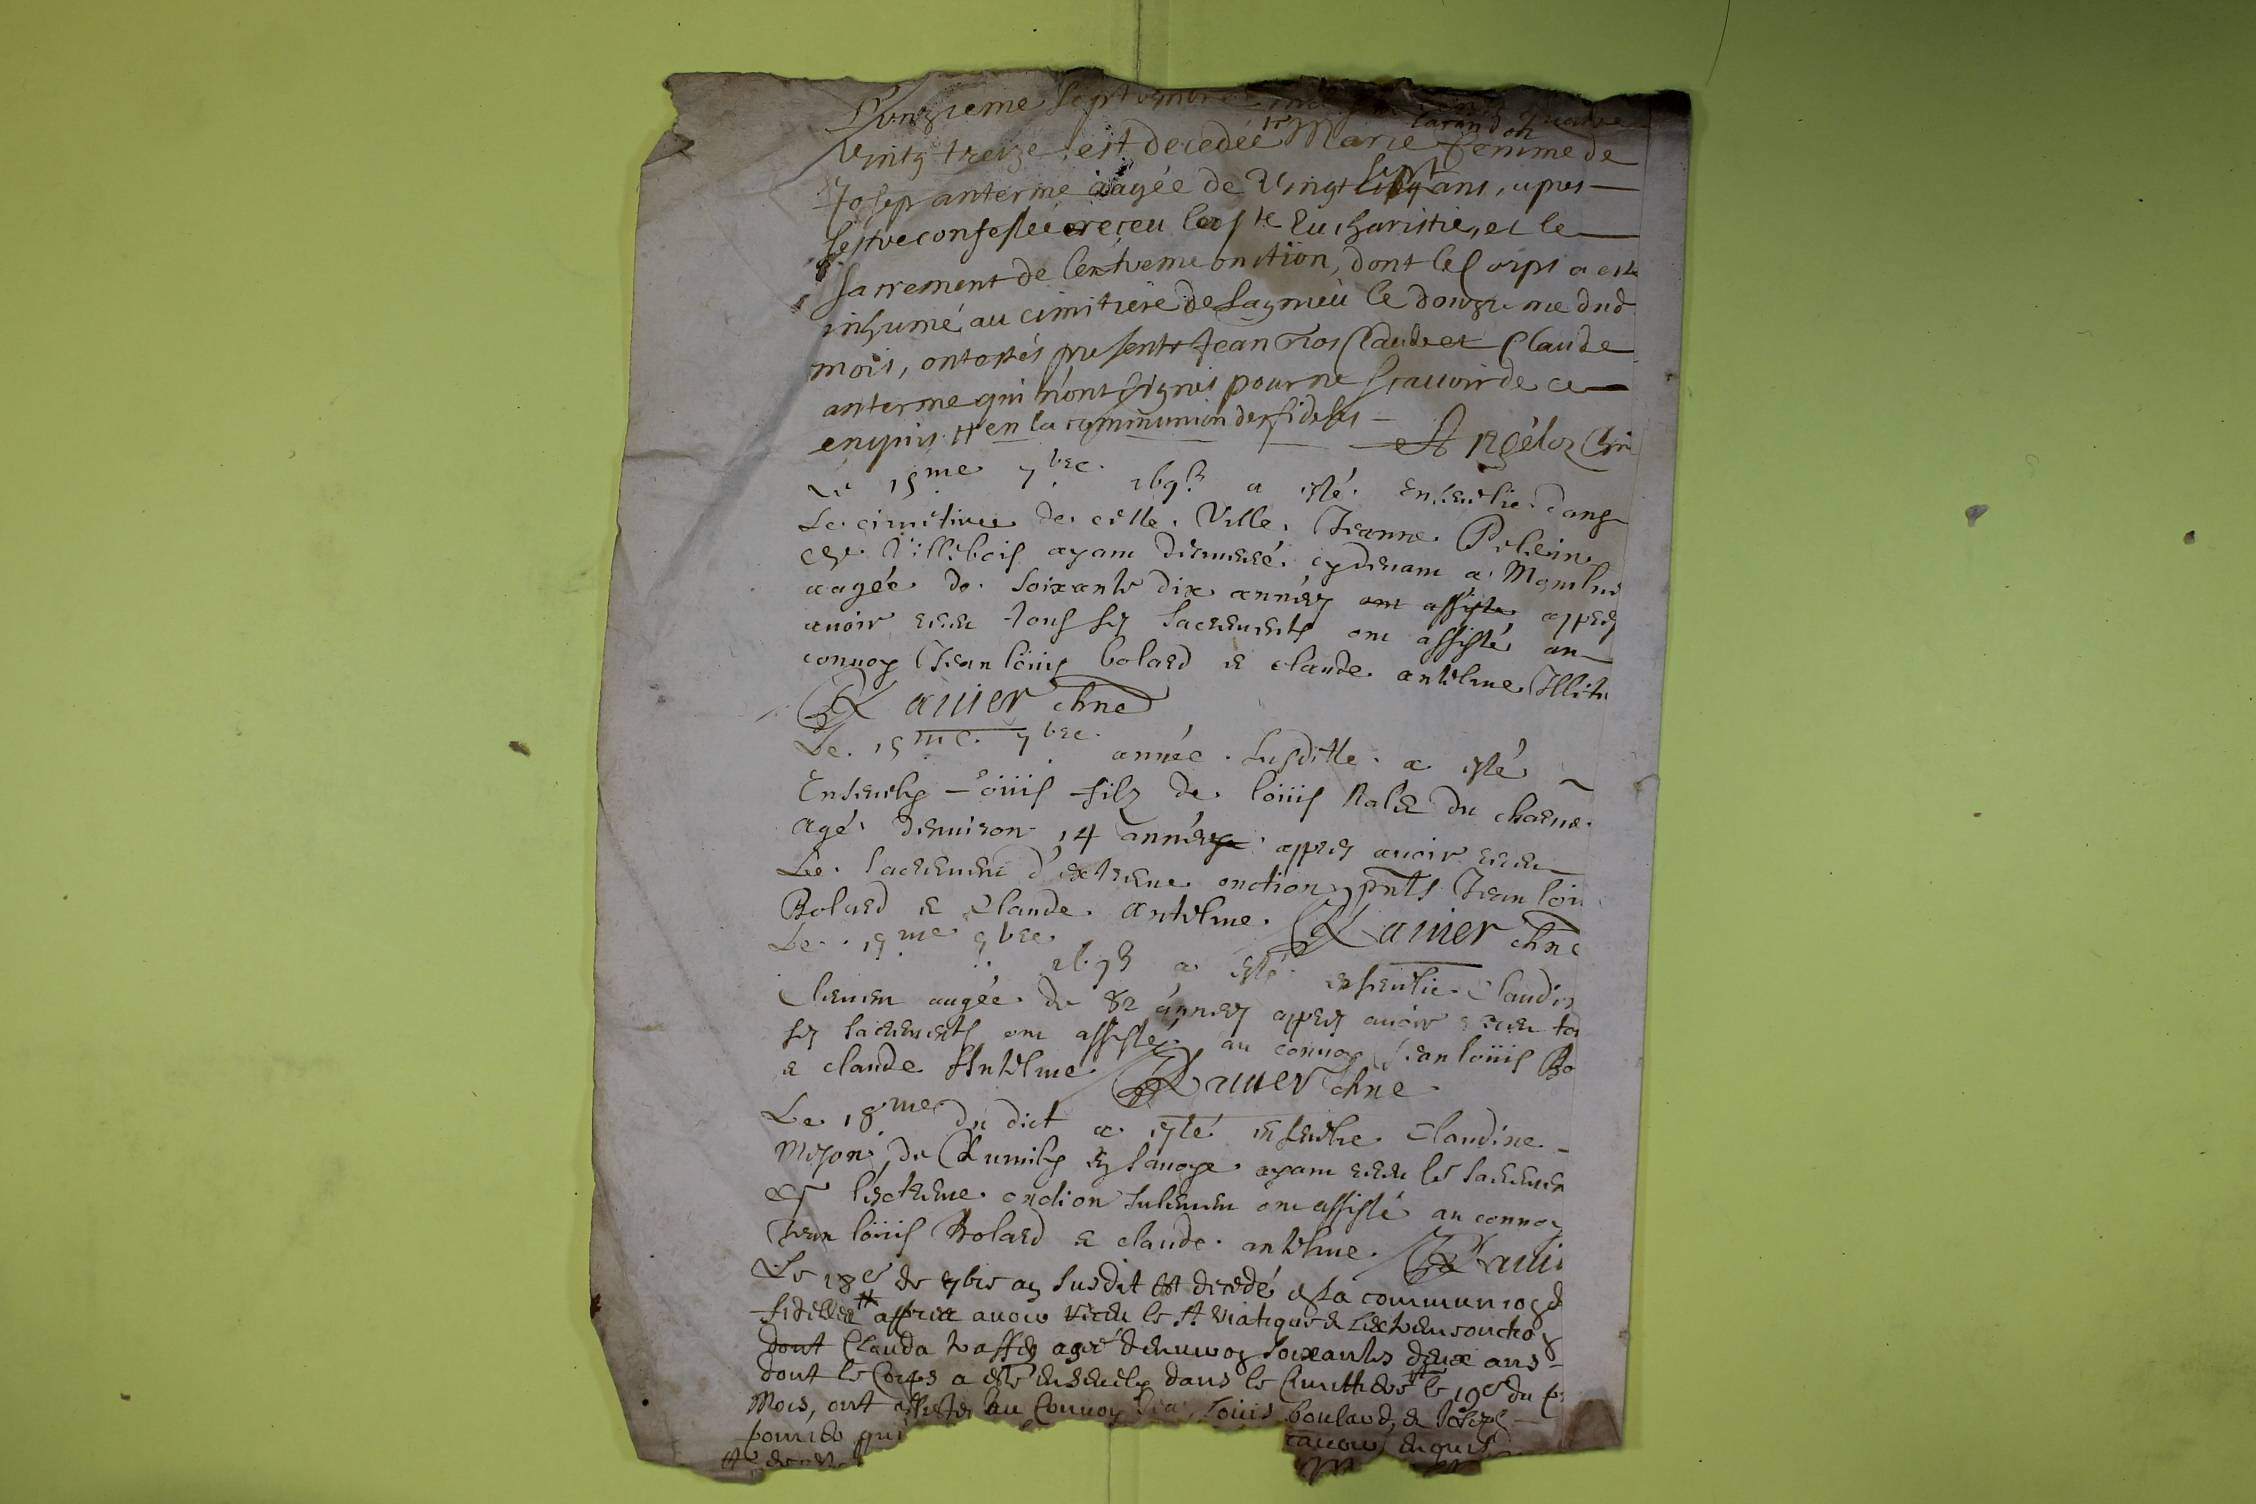 L'onzieme septembre mil six cents quatre
Vingts treize est decedée Marie Carandon femme de
Josep anterme aagée de Vingt sept ans, apres
sestre confessée receu la ste Eucharistie, et le
sacrement de l'extreme onction, dont le Corps a esté
inhumé au cimitiere de Lagnieu le douzieme dud
mois, ont estés presents Jean Claude et Claude
anterme qui n'ont signés pour ne scauoir de ce
enquis # en la communion des fideles
Le 15me 7bre 1693 a esté enseuelie dans
Le cimetiere de cette Ville Jeanne
de Villebois ayant demeuré cydeuant a
aagée de soixante dix années ont assisté appres
auoir receu tous ses sacrements ont assisté au
conuoy Jean loüis bolard & claude antelme Illiter
Rauier chne
Le 15me 7bre année susditte a esté
Enseuely Loüis filz de loüis du
agé d'enuiron 14 années appres auoir receu
Le sacrement d'extreme onction pnts Jean loü
Bolard & Claude antelme Rauier chne
Le 15me 7bre 1693 a esté enseuelie Claudine
Clement aagée de 82 années appres auoir receu to
ses sacrements ont assistés au conuoy Jean loüis Bo
& claude Antelme Rauier chne
Le 18me du dict a esté enseuelie Claudine
de Rumilly en sauoye ayant receu le sacremen
de l'extreme onction sulement ont assisté au conuoy
Jean loüis Bolard & claude antelme Raui
Le 18e de 7bre an susdit est decedé en la communion d
fidelles # appres auoir receu le st viatique & l'extreme onction
dont Clauda agé d'enuiron soixantes deux ans
dont le Corps a esté enseuely dans le Cimitiere le 19e du
Mois, ont assistes au Conuoy Jean Louis boulard, & Josept
qui scauoir enquis